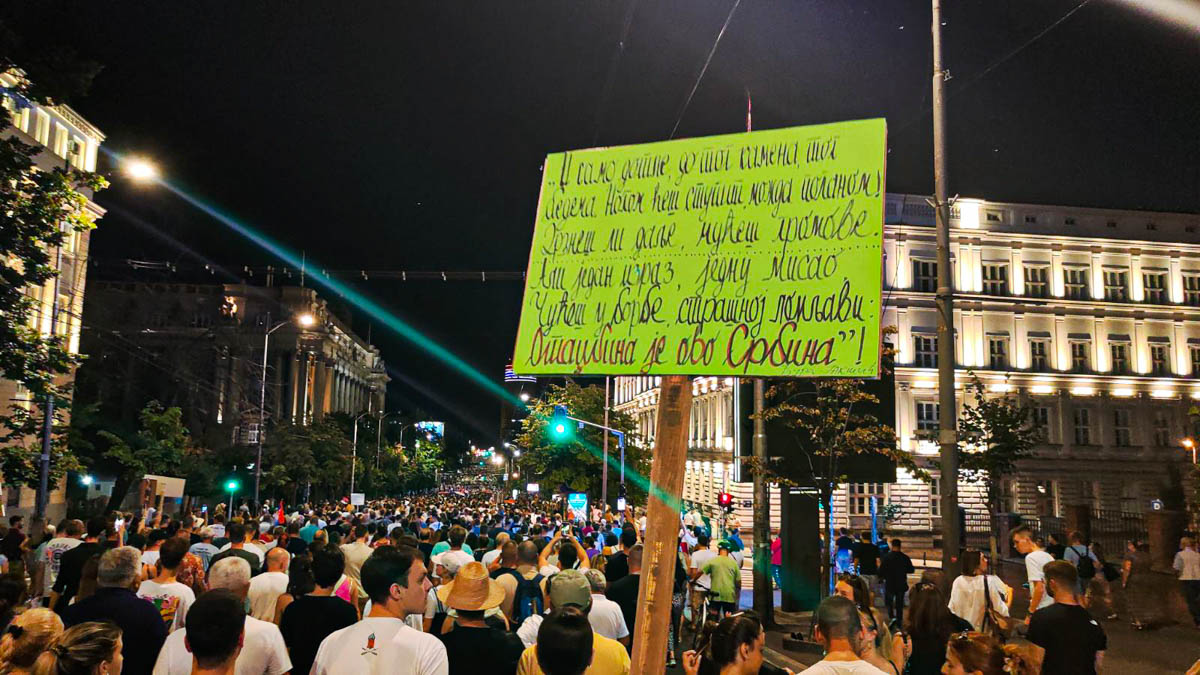 „И само дотле, до тог камена, тог
бедема, Ногом ћеш ступит, можда поганом!
Дрзнеш ли даље, чућеш громове.
Али један израз, једну мисао,
Чућеш у борбе, страшној ломљави:
Отаџбина је ово Србина”!
Ђура Јакшић